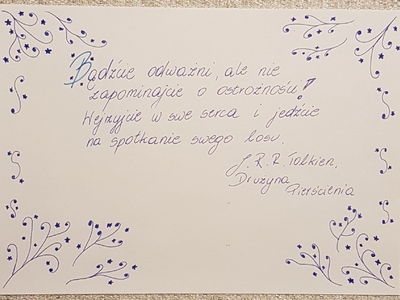 Bądźcie odważni, ale nie
zapominajcie o ostrożności!
Wejrzyjcie w swe serca i jedźcie
na spotkanie swego losu.
J. R. R. Tolkien.
Drużyna
Pierścienia